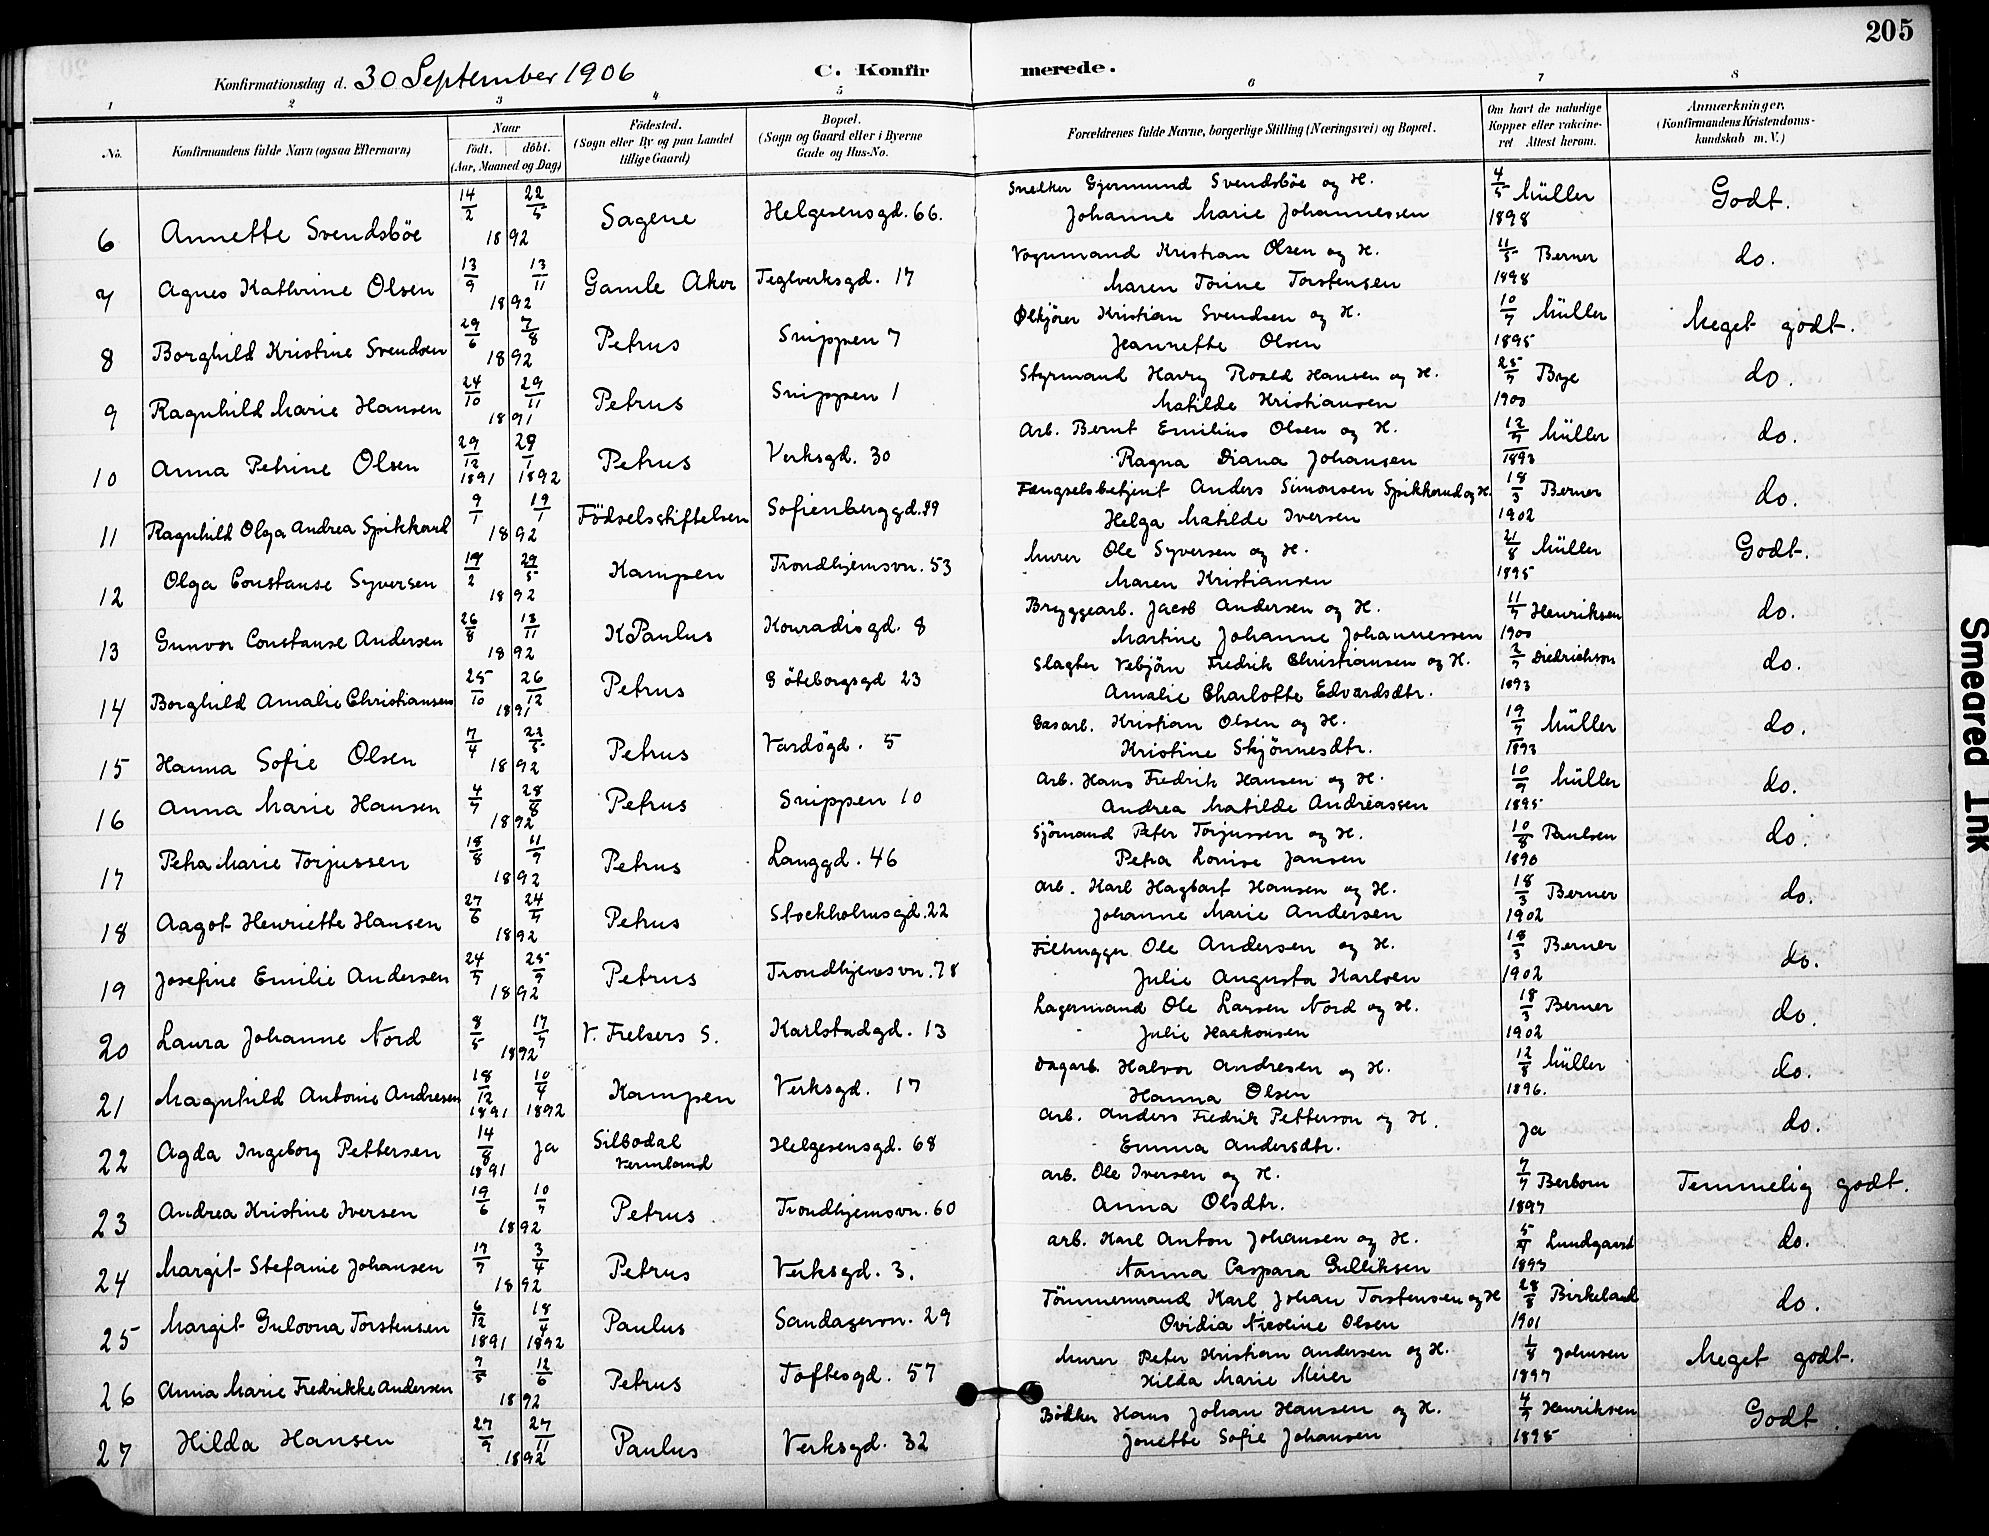 205
Konfirmationsdag d. 30 September 1906 C. Konfirmerede.
1 2 3 4 5 6 7 8
No. Konfirmandens fulde Navn (ogsaa Efternavn) Naar født. døbt. (Aar, Maaned og Dag) Födested. (Sogn eller By og paa Landet tillige Gaard) Bopæl. (Sogn og Gaard eller i Byerne Gade og Hus-No. Forældrenes fulde Navne, borgerlige Stilling (Næringsvei) og Bopæl. Om havt de naturlige Kopper eller vakcineret Attest herom. Anmærkninger, (Konfirmandens Kristendomskundskab m. V.)
6 Annette Svendsböe 14/2 22/5 1892 Sagene Helgesensgd. 66. Snekker Gjermund Svendsböe og H. Johanne Marie Johannessen 4/5 Müller 1898 Godt.
7 Agnes Kathrine Olsen 13/9 13/11 1892 Gamle Aker Teglverksgd. 17 Vognmand Kristian Olsen og H. Maren Torine Torstensen 11/5 Berner 1898 do.
8 Borghild Kristine Svendsen 29/6 7/8 1892 Petrus Snippen 7 Ølkjörer Kristian Svendsen og H. Jeannette Olsen 10/7 Müller 1895 Meget godt.
9 Ragnhild Marie Hansen 24/10 29/11 1891 Petrus Snippen 1 Styrmand Harry Roald Hansen og H. Matilde Kristiansen 25/7 Bye 1900 do.
10 Anna Petrine Olsen 29/12 1891 29/1 1892 Petrus Verksgd. 30 Arb. Bernt Emilius Olsen og H. Ragna Diana Johansen 12/7 Müller 1893 do.
11 Ragnhild Olga Andrea Spikkerud 9/1 19/1 1892 Födselsstiftelsen Sofienberggd. 89 Fængselsbetjent Anders Simonsen Spikkerud og H. Helga Matilde Iversen 18/3 Berner 1902 do.
12 Olga Constanse Syversen 19/2 29/5 1892 Kampen Trondhjemsvn. 53 Murer Ole Syversen og H. Maren Kristiansen 21/8 Müller 1895 Godt.
13 Gunvor Constanse Andersen 26/8 13/11 1892 KPaulus Konradisgd. 8 Bryggearb. Jacob Andersen og H. Martine Johanne Johannessen 11/7 Henriksen 1900 do.
14 Borghild Amalie Christiansen 25/10 26/12 1891 Petrus Göteborgsgd 23 Slagter Vebjörn Fredrik Christiansen og H. Amalie Charlotte Edvardsdtr. 2/7 Diedrichson 1893 do.
15 Hanna Sofie Olsen 7/4 22/5 1892 Petrus Vardögd. 5 Gasarb. Kristian Olsen og H. Kristine Skjönnesdtr. 19/7 Müller 1893 do.
16 Anna Marie Hansen 4/7 28/8 1892 Petrus Snippen 10 Arb. Hans Fredrik Hansen og H. Andrea Matilde Andreassen 10/7 Müller 1895 do.
17 Petra Marie Torjussen 18/8 11/9 1892 Petrus Langgd. 46 Sjömand Peter Torjussen og H. Petra Louise Jansen 10/8 Paulsen 1890 do.
18 Aagot Henriette Hansen 27/6 24/7 1892 Petrus Stockholmsgd. 22 Arb. Karl Hagbart Hansen og H. Johanne Marie Andersen 18/3 Berner 1902 do.
19 Josefine Emilie Andersen 24/7 25/9 1892 Petrus Trondhjemsvn. 78 Filhugger Ole Andersen og H. Julie Augusta Karlsen 18/3 Berner 1902 do.
20 Laura Johanne Nord 8/5 17/7 1892 V. Frelsers S. Karlstadgd. 13 Lagermand Ole Larsen Nord og H. Julie Haakonsen 18/3 Berner 1902 do.
21 Magnhild Antonie Andresen 18/12 1891 10/4 1892 Kampen Verksgd. 17 Dagarb. Halvor Andresen og H. Hanna Olsen 12/8 Müller 1896. do.
22 Agda Ingeborg Pettersen 14/8 1891 Ja Silbodal Vermland Helgesensgd. 68 Arb. Anders Fredrik Petterson og H. Emma Andersdtr. Ja do.
23 Andrea Kristine Iversen 19/6 10/7 1892 Petrus Trondhjemsvn. 60 Arb. Ole Iversen og H. Anna Olsdtr. 7/7 Berbom 1897 Temmelig godt.
24 Margit Stefanie Johansen 17/7 3/4 1892 Petrus Verksgd. 3. Arb. Karl Anton Johansen og H. Nanna Caspara Gulliksen 5/7 Lundgaard 1893 do.
25 Margit Gulovna Torstensen 6/12 1891 18/4 1892 Paulus Sandagervn. 29 Tömmermand Karl Johan Torstensen og H Ovidia Nicoline Olsen 28/8 Birkeland 1901 do.
26 Anna Marie Fredrikke Andersen 7/5 12/6 1892 Petrus Toftesgd. 57 Murer Peter Kristian Andersen og H. Hilda Marie Meier 1/8 Johnsen 1897 Meget godt.
27 Hilda Hansen 27/9 27/11 1892 Paulus Verksgd. 32 Bödker Hans Johan Hansen og H. Jonette Sofie Johansen 4/7 Henriksen 1895 Godt
Smeared Ink